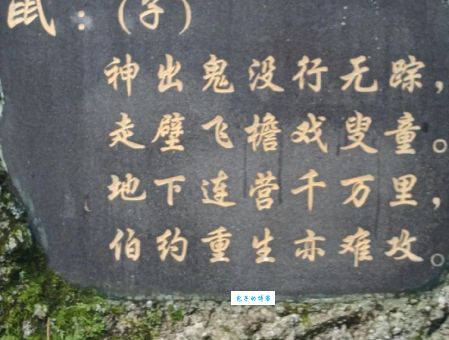 鼠：（子）
神出鬼没行无踪，
走壁飞檐戏叟童。
地下连营千万里，
伯约重生亦难攻。